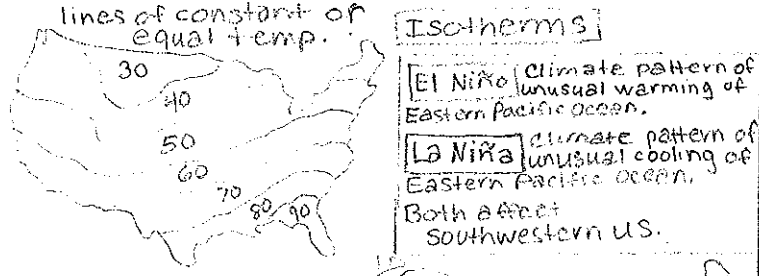 lines of constant or
equal temp.
30
40
50
60
70
80
90
Isotherms
El Niño Climate pattern of
unusual warming of
Eastern Pacific Ocean.
La Niña climate pattern of
unusual cooling of
Eastern Pacific Ocean.
Both affect
southwestern US.